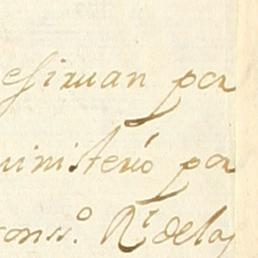 esiruan por
ministerio por
cons.º R.l delas